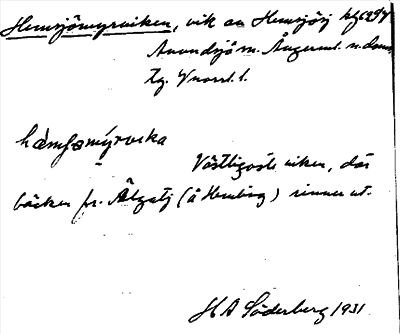 Hemsjömyrviken, vik av Hemsjöj
Anundsjö sn. Ångerml. n. doms
tg. Vnorrl. l.
hàmsamýrvika
Västligaste viken, där
bäcken fr. Älgatj (å Hemberg) rinner ut.
H A Söderberg 1931